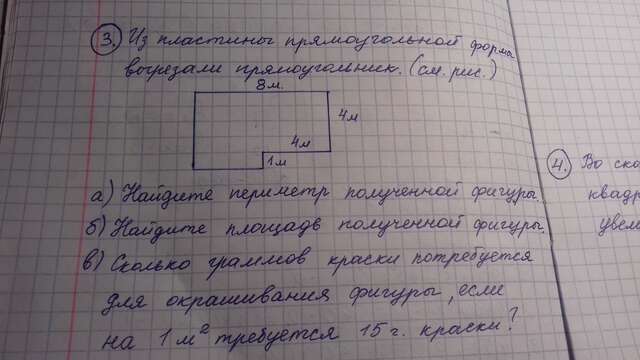 3. Из пластины прямоугольной формы
вырезали прямоугольник. (см. рис.)
8 м.
4м
4м
1м
а) Найдите периметр полученной фигуры.
б) Найдите площадь полученной фигуры.
в) Сколько граммов краски потребуется
для окрашивания фигуры, если
на 1 м² требуется 15 г. краски?
4. Во ско
квадр
увем